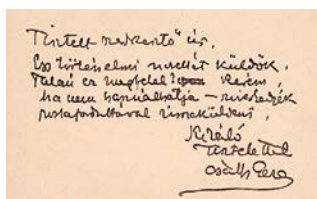 Tisztelt szerkesztő úr,
Egy történelmi novellát küldök.
Talán ez megfelel? Kérem,
ha nem használhatja – szíveskedjék
postafordultával visszaküldeni.
Kiváló
tisztelettel